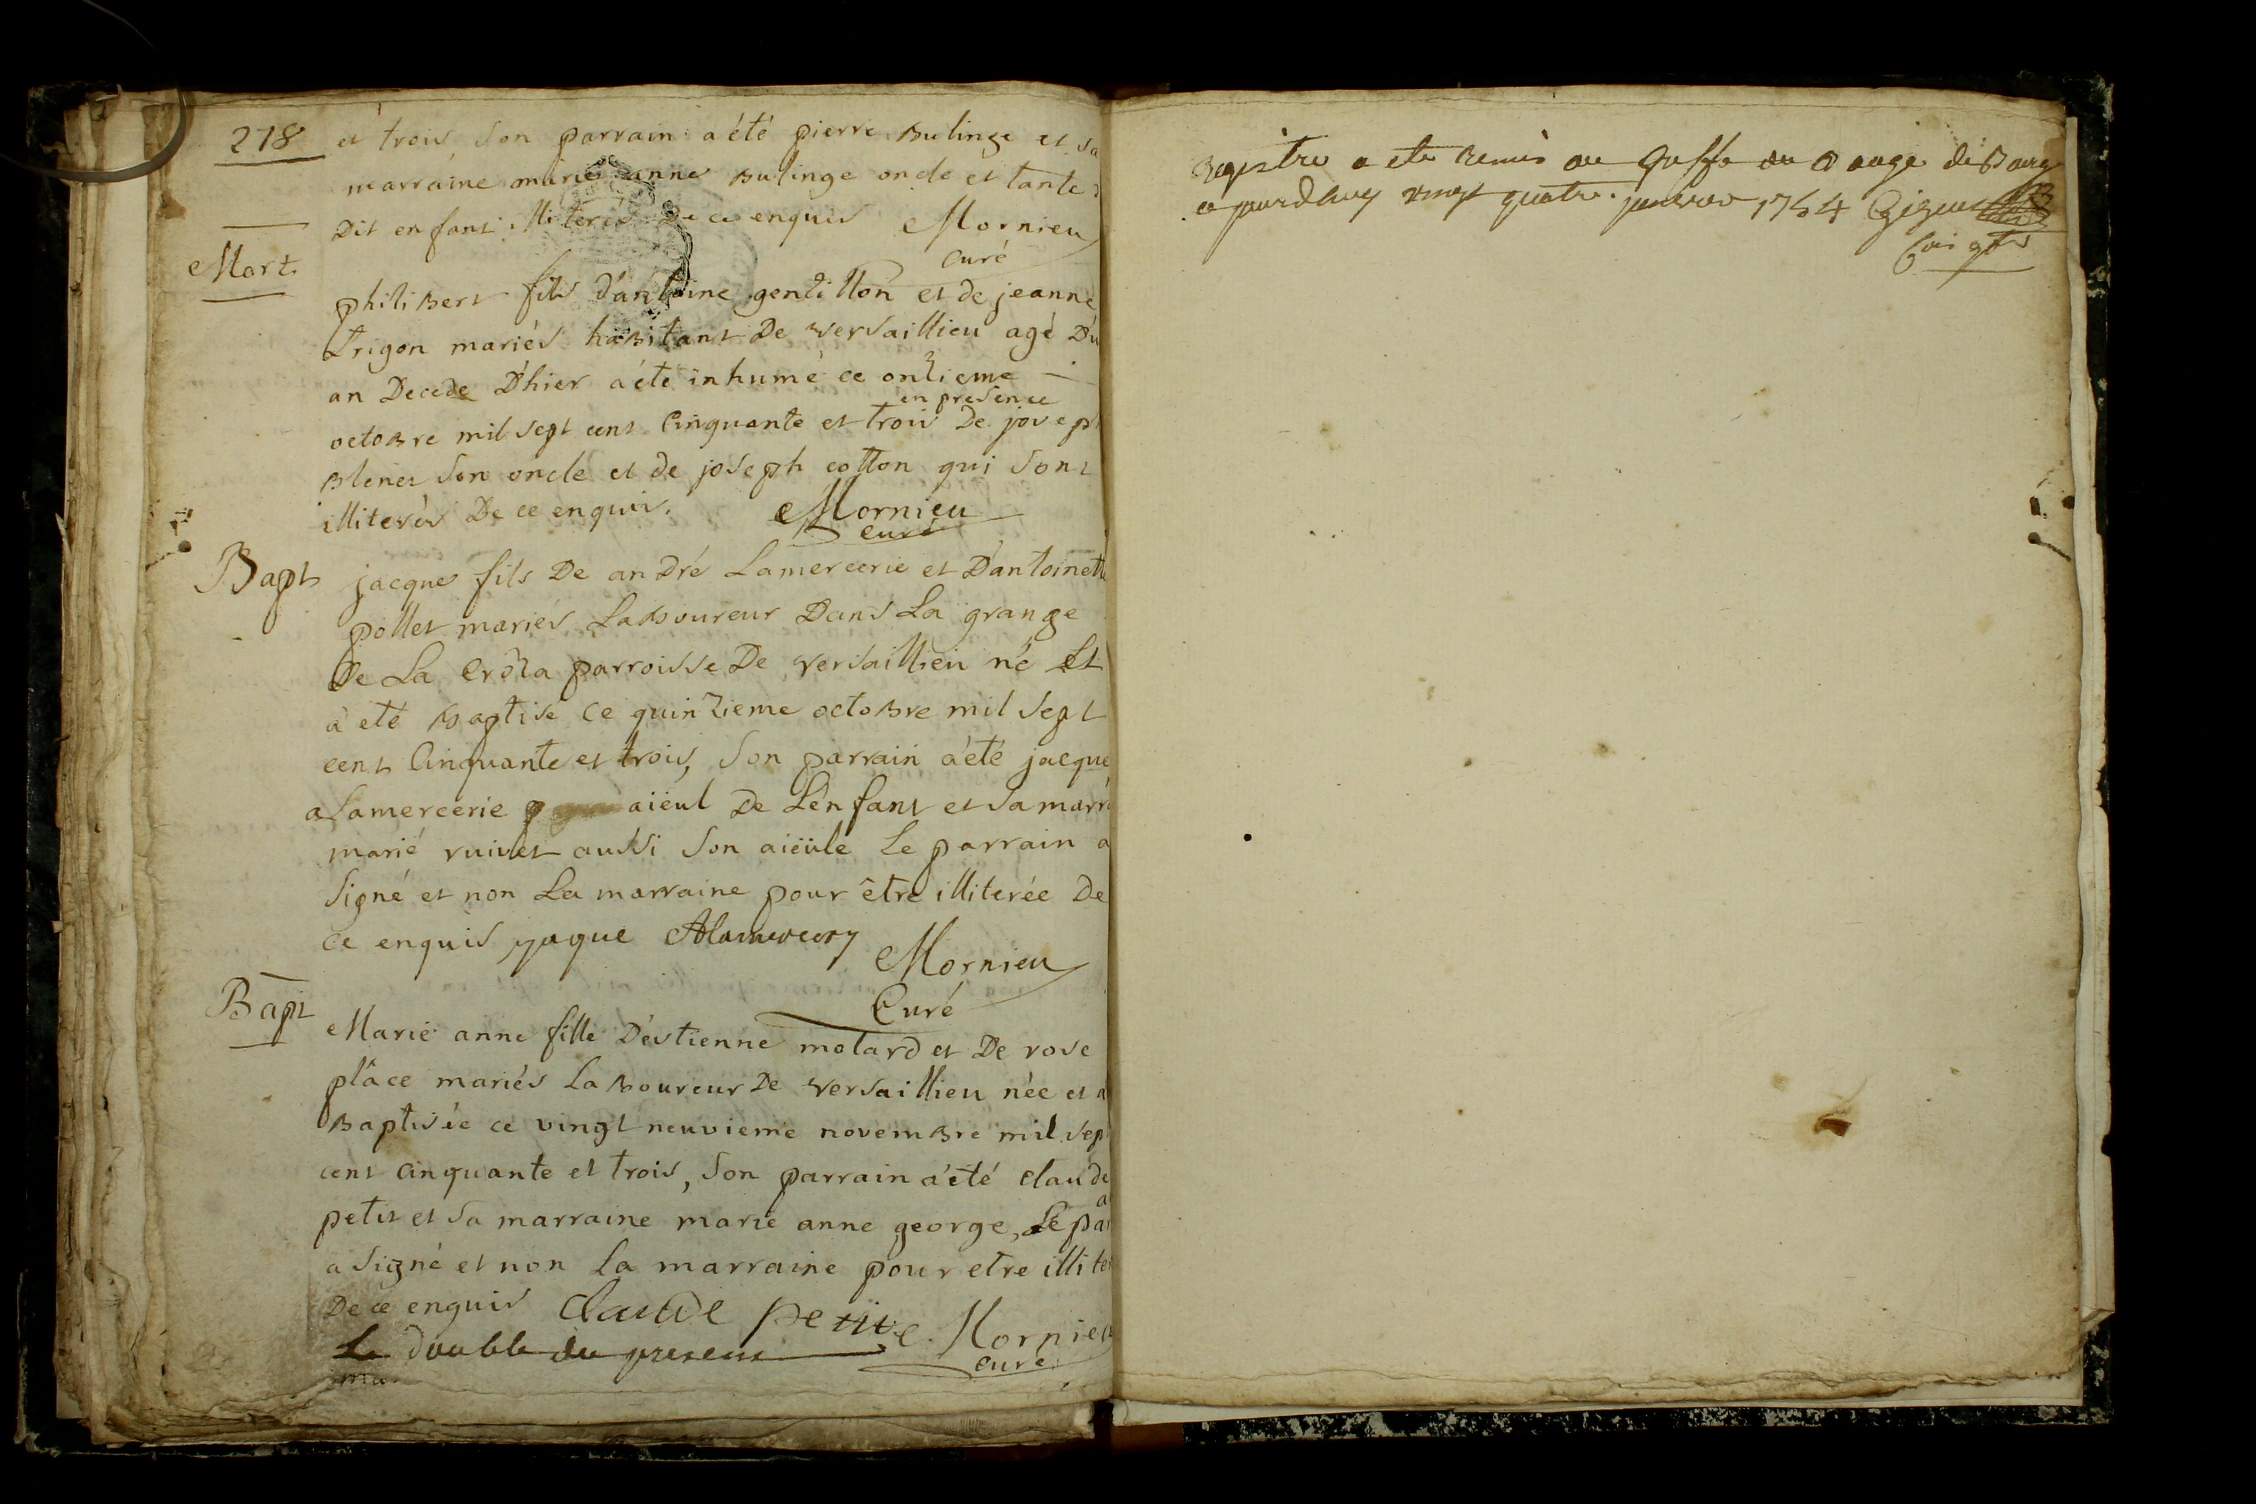 278 et trois son parrain a été pierre Bulinge et sa
marraine marie anne Bulinge oncle et tante d
Dit enfant illiterés De ce enquis Mornieu
curé
Mort.
philiBert fils d'antoine gentillon et de jeanne
trigon mariés haBitant De versaillieu agé D'u
an Decede D'hier a été inhumé ce onzieme
en presence
octoBre mil sept cent Cinquante et trois De josep
Blenet son oncle et de joseph cotton qui sont
illiterés De ce enquis. Mornieu
curé
Bapt jacque fils De andré Lamercerie et D'antoinette
pollet mariés LaBoureur Dans La grange
De La Crôza parroisse De versaillieu né Et
a eté Baptisé ce quinzieme octoBre mil sept
cent Cinquante et trois, son parrain a été jacque
aLamercerie aieul De L'enfant et sa marr
marie vuivet aussi son aieüle Le parrain a
signé et non La marraine pour être illiterée De
ce enquis jaque Alamercery
Mornieu
Curé
Bapt
Marie anne fille D'estienne motard et De rose
place mariés LaBoureur De versaillieu née et a
Baptisée ce vingt neuvieme novemBre mil sep
cent cinquante et trois, son parrain a été claude
a
petit et sa marraine marie anne george, Le pa
a signé et non La marraine pour etre illite
De ce enquis Claude petit Mornieu
curé
Le double du present
ma
Registre a ete Remis au Greffe du de Bourg
ce jourdhuy vingt quatre janvier 1754